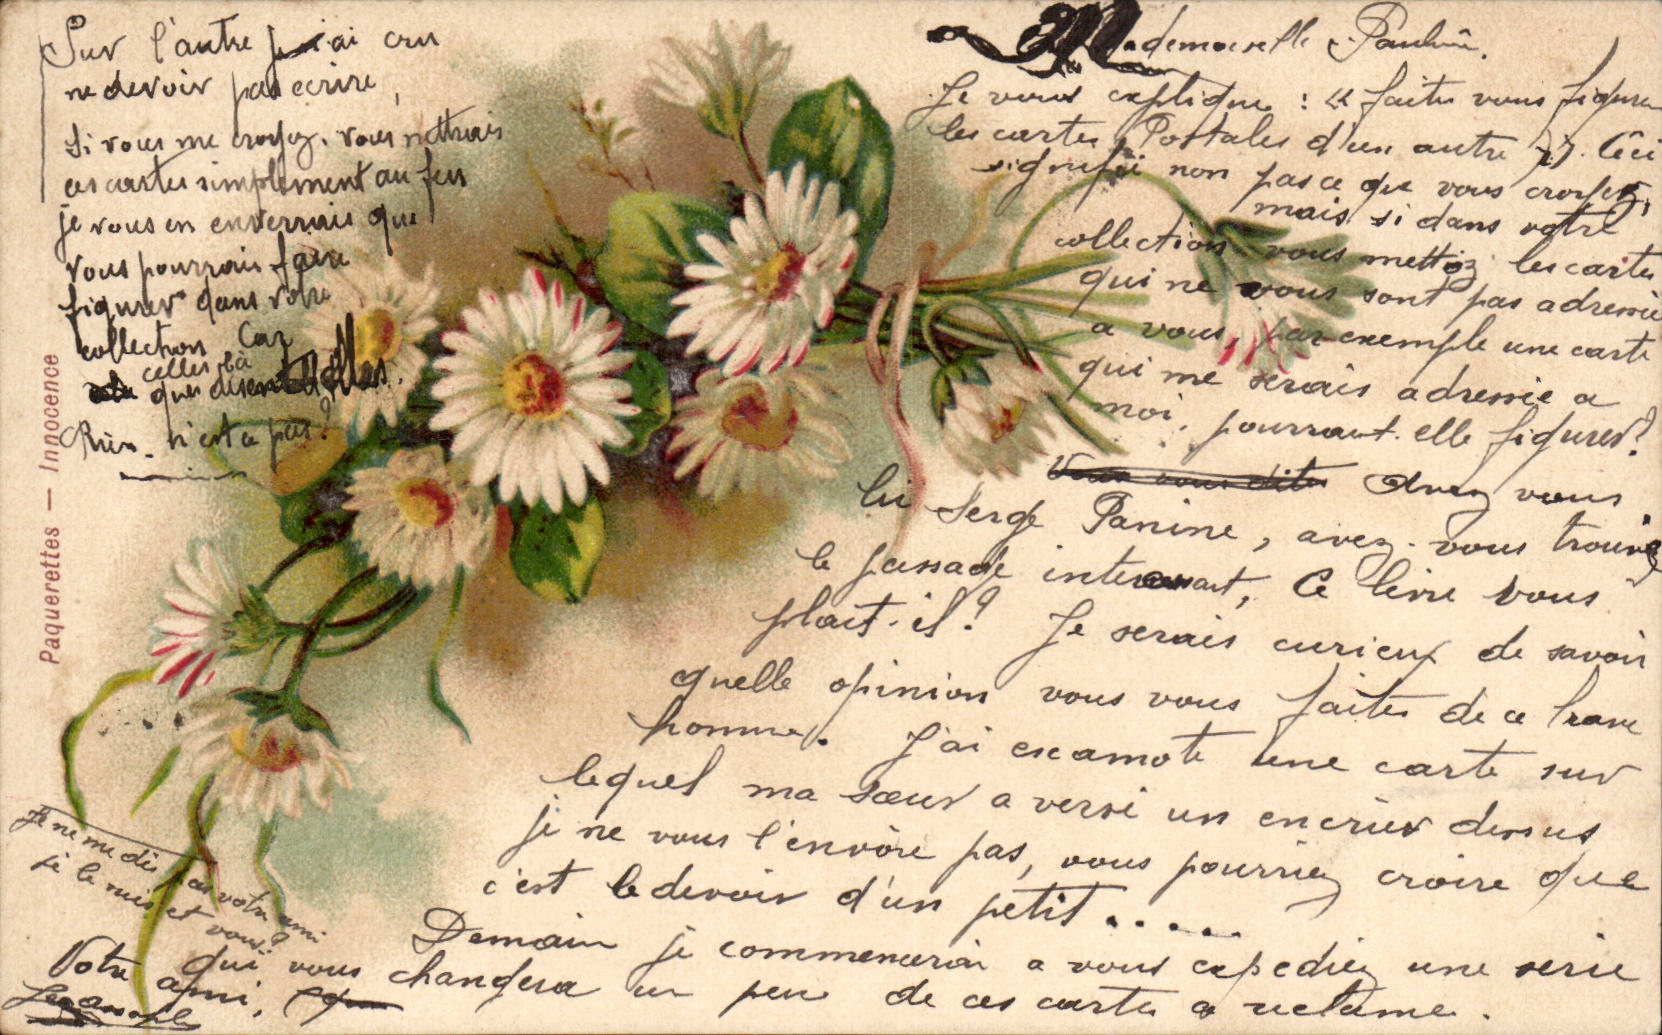 Mademoiselle Pauline.
Je vous explique : « faites vous figurer
les cartes Postales d'un autre ?». Ceci
signifie non pas ce que vous croyez,
mais si dans votre
collection vous mettez les cartes
qui ne vous sont pas adressée
a vous, par exemple une carte
qui me serais adressée a
moi, pourraut elle figurer?
Avez vous
lu Serge Panine, avez-vous trouvé
le passage interessant, Ce livre vous
plait-il? Je serais curieux de savoir
quelle opinion vous vous faites de ce brave
homme. J'ai escamoté une carte sur
lequel ma sœur a versé un encrier dessus
je ne vous l'envoie pas, vous pourriez croire que
c'est le devoir d'un petit.....
Demain je commencerai a vous expediez une serie
qui vous changera un peu de ces cartes a reclame.
Votre ami,
Sur l'autre j'ai cru
ne devoir pas ecrire,
Si vous me croyez, vous mettrais
ces cartes simplement au feu
je vous en enverrais que
vous pourrais faire
figurer dans votre
collection Car
celles là
que disent elles.
Rien. n'est ce pas?
Je ne me dis pas votre ami
je le suis et vous?
Paquerettes — Innocence